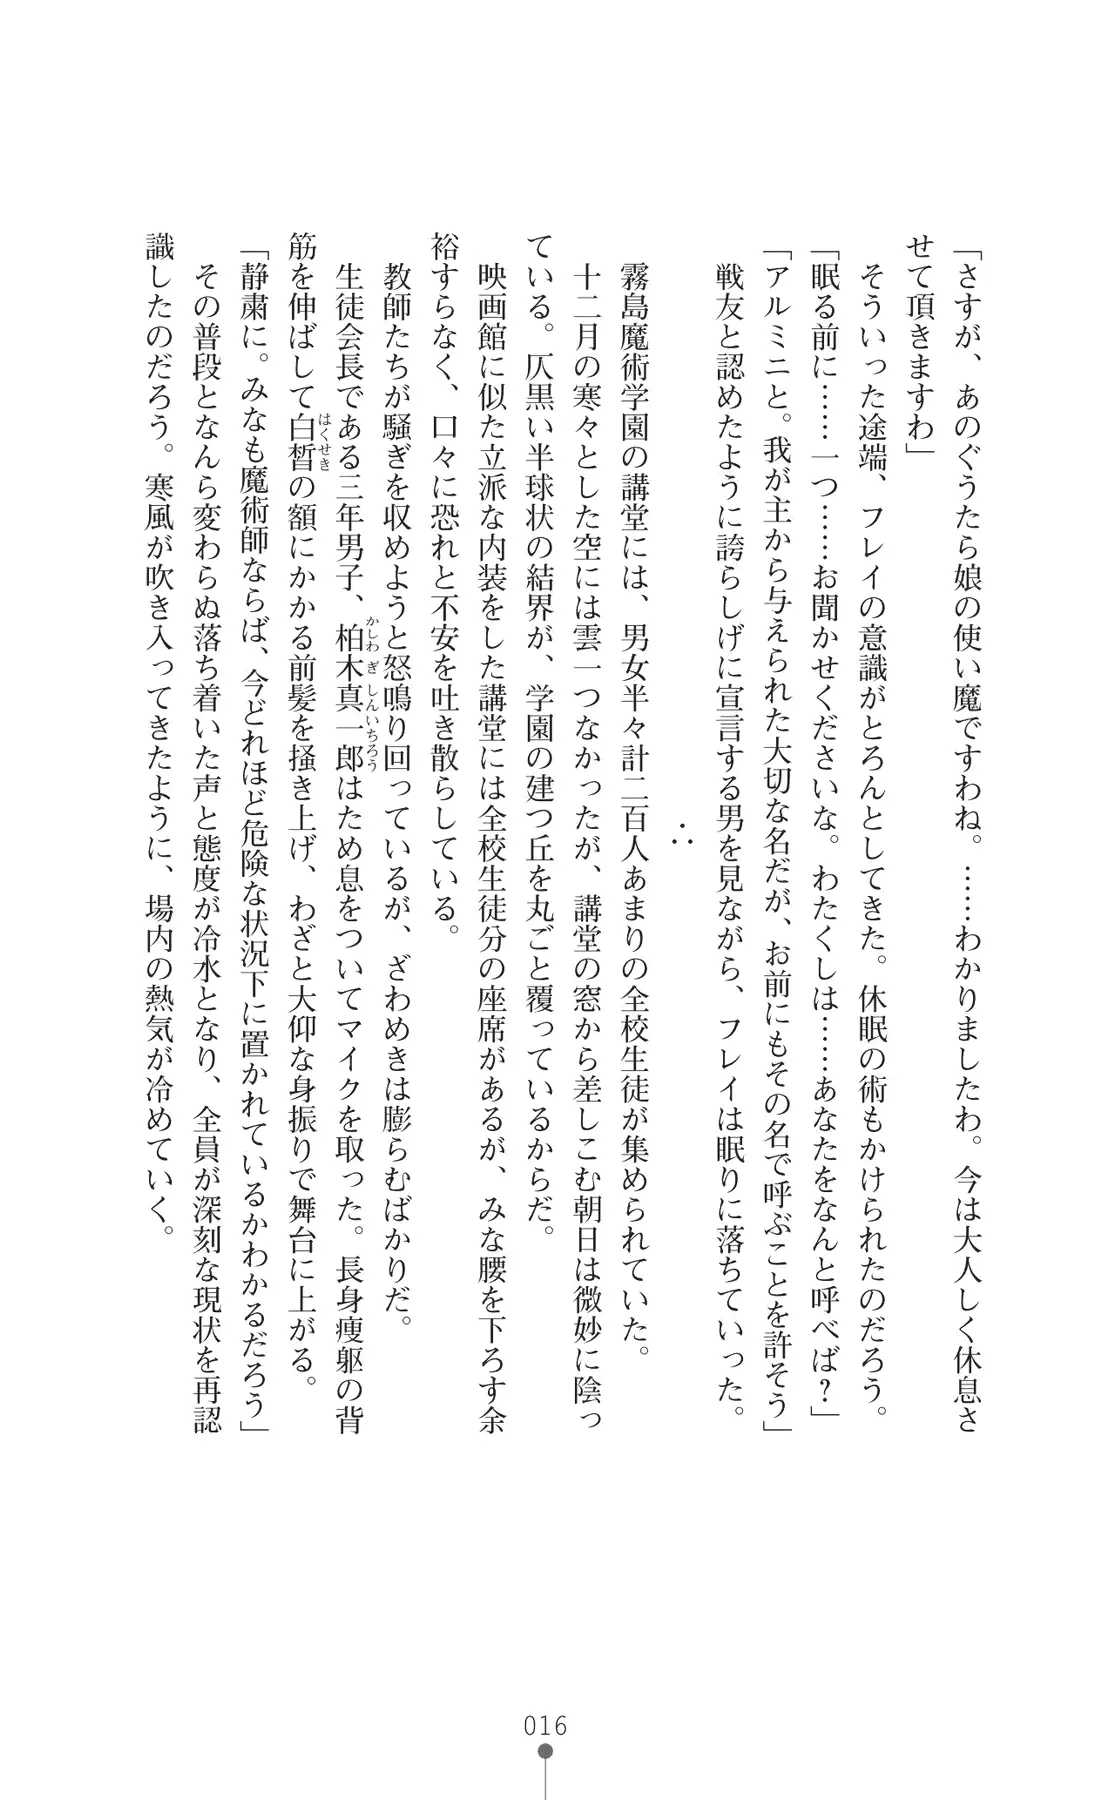 「さすが、あのぐうたら娘の使い魔ですわね。……わかりましたわ。今は大人しく休息さ
せて頂きますわ」
そういった途端、フレイの意識がとろんとしてきた。休眠の術もかけられたのだろう。
「眠る前に……一つ……お聞かせくださいな。わたくしは……あなたをなんと呼べば？」
「アルミニと。我が主から与えられた大切な名だが、お前にもその名で呼ぶことを許そう」
戦友と認めたように誇らしげに宣言する男を見ながら、フレイは眠りに落ちていった。
∴
霧島魔術学園の講堂には、男女半々計二百人あまりの全校生徒が集められていた。
十二月の寒々とした空には雲一つなかったが、講堂の窓から差しこむ朝日は微妙に陰っ
ている。仄黒い半球状の結界が、学園の建つ丘を丸ごと覆っているからだ。
映画館に似た立派な内装をした講堂には全校生徒分の座席があるが、みな腰を下ろす余
裕すらなく、口々に恐れと不安を吐き散らしている。
教師たちが騒ぎを収めようと怒鳴り回っているが、ざわめきは膨らむばかりだ。
生徒会長である三年男子、柏木真一郎はため息をついてマイクを取った。長身痩躯の背
かしわぎしんいちろう
筋を伸ばして白皙の額にかかる前髪を掻き上げ、わざと大仰な身振りで舞台に上がる。
はくせき
「静粛に。みなも魔術師ならば、今どれほど危険な状況下に置かれているかわかるだろう」
その普段となんら変わらぬ落ち着いた声と態度が冷水となり、全員が深刻な現状を再認
識したのだろう。寒風が吹き入ってきたように、場内の熱気が冷めていく。
016